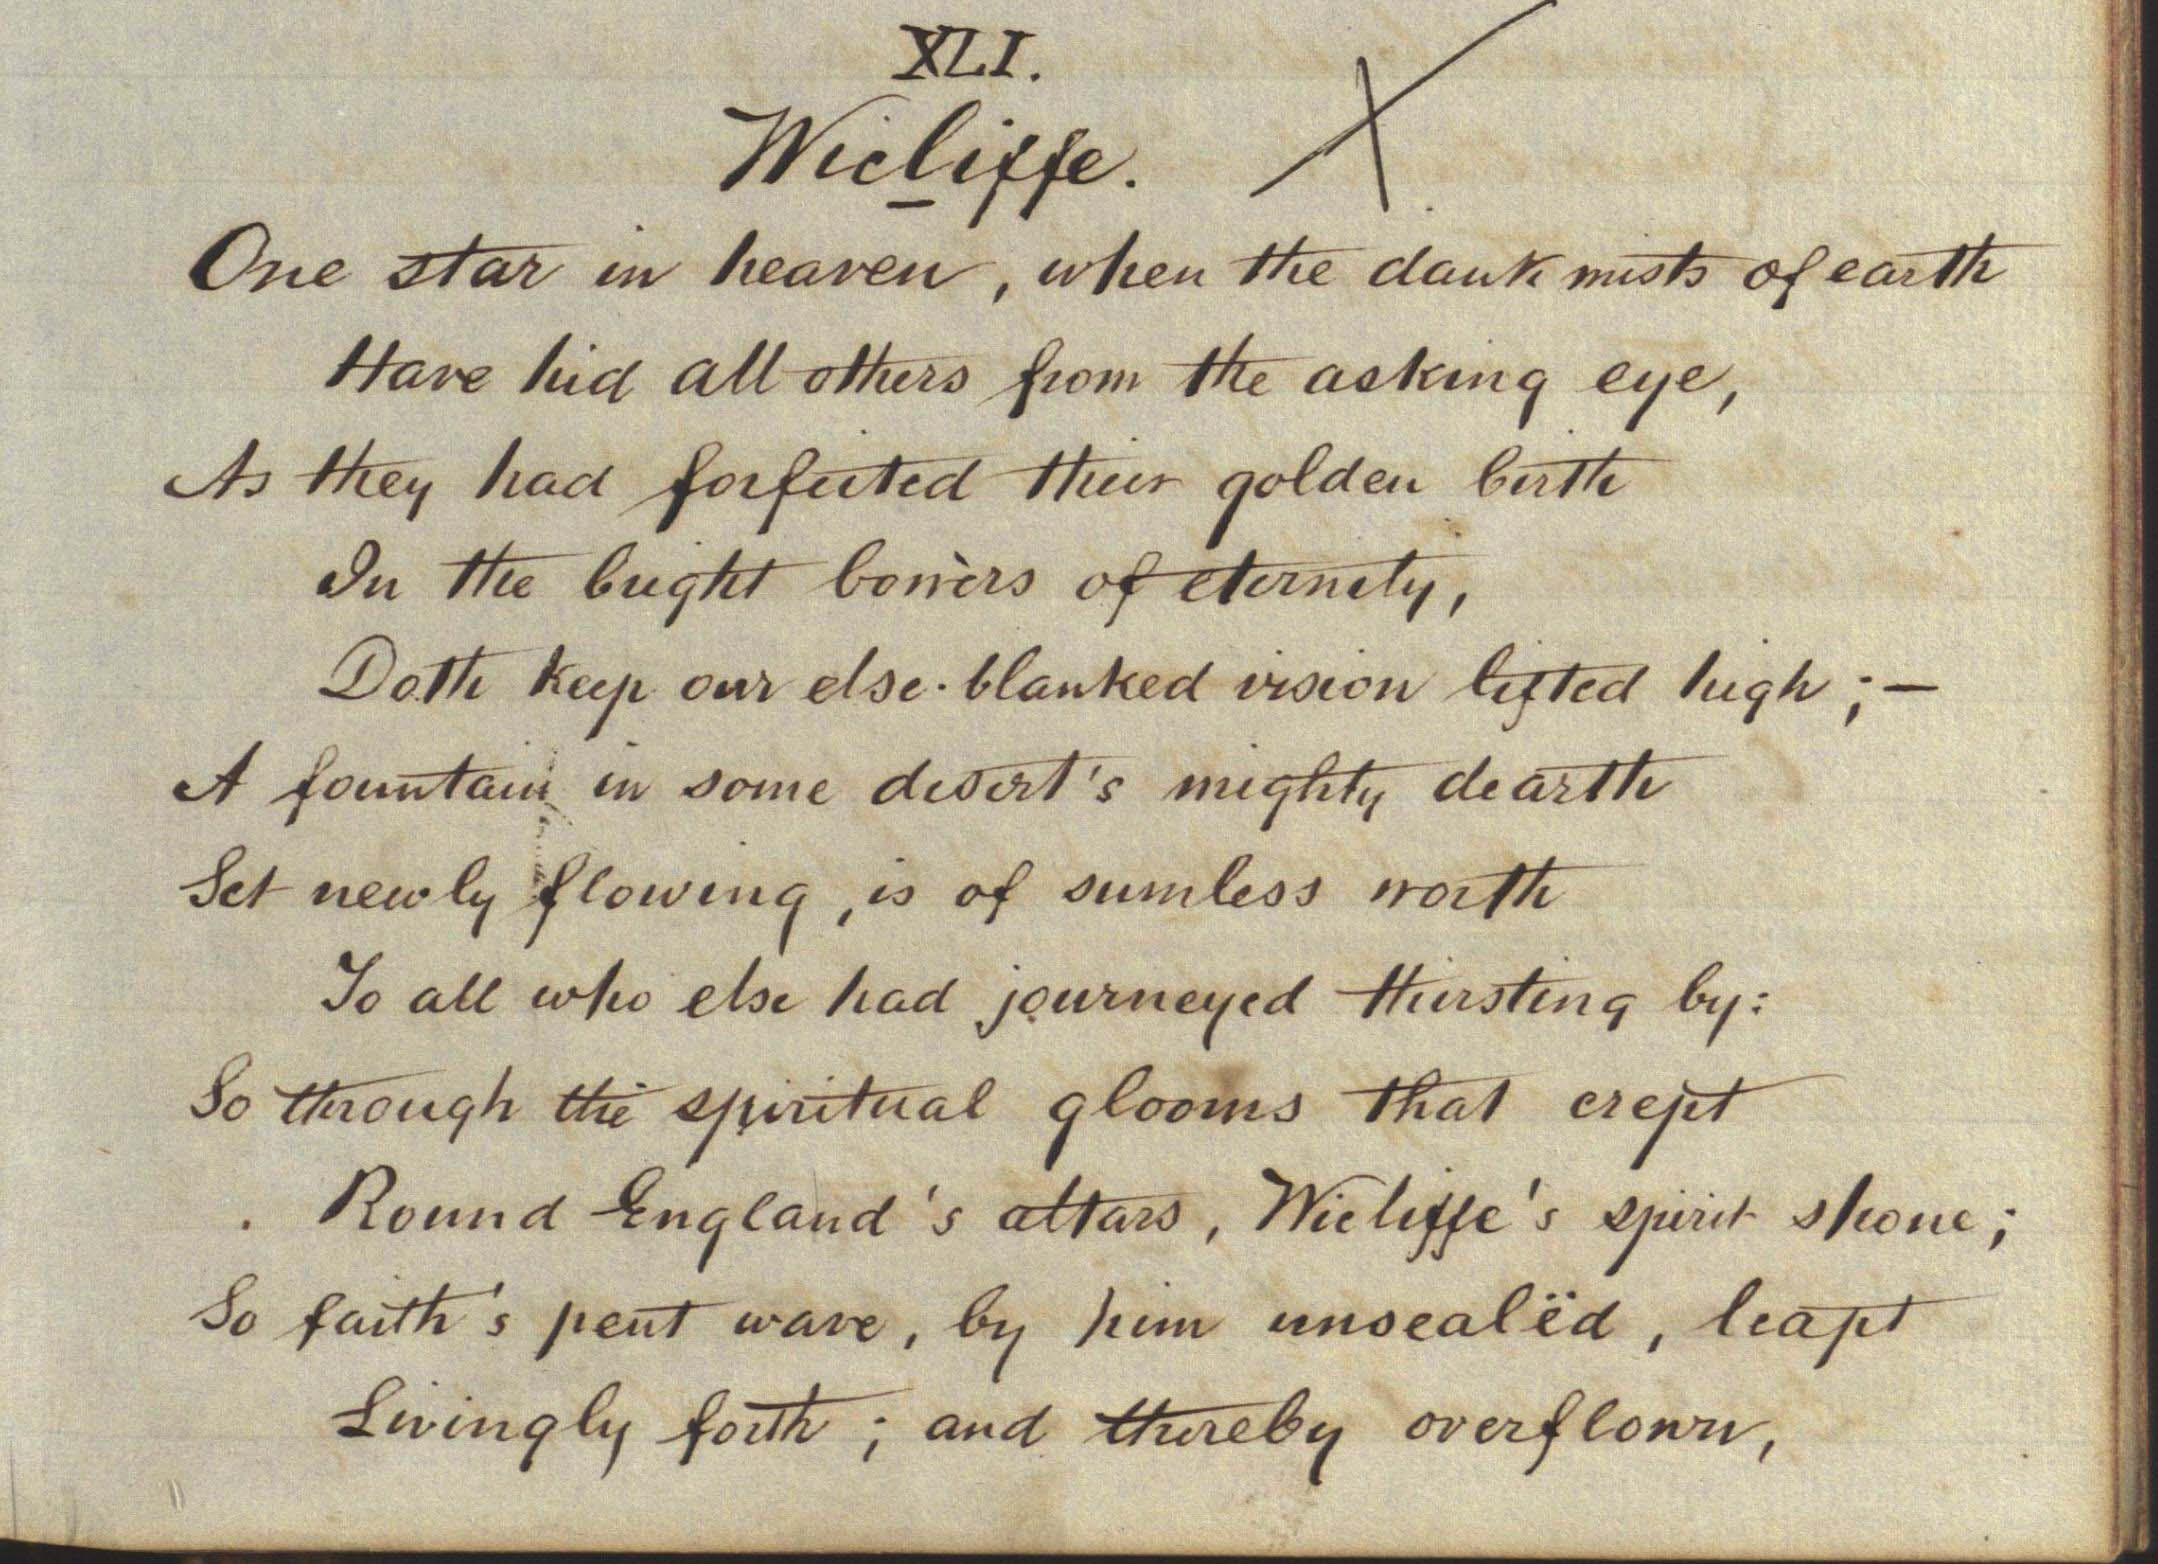 XLI.
Wicliffe. X
One star in heaven, when the dank mists of earth
Have hid all others from the asking eye,
As they had forfeited their golden birth
In the bright bowers of eternity,
Doth keep our else-blanked vision lifted high; —
A fountain in some desert's mighty dearth
Set newly flowing, is of sumless worth
To all who else had journeyed thirsting by:
So through the spiritual glooms that crept
Round England's altars, Wicliffe's spirit shone;
So faith's pent wave, by him unsealëd, leapt
Livingly forth; and thereby overflown,